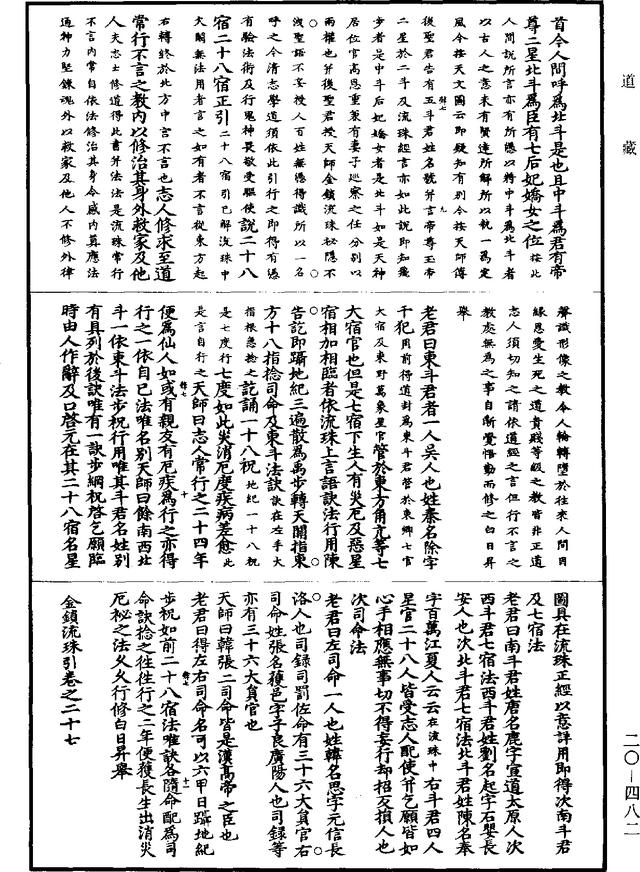 道藏
首今人間呼為北斗是也且中斗為君有帝
尊二星北斗為臣有七后妃嬌女之位按北
人間說所言亦有所憑以將中斗為北斗者
以古人之意未有賢達所解所以執一為定
風今按天文圖云即疑知有別今按天師傳
後聖君告有五斗君姓名號并言帝尊玉帝
二星於二斗及流珠經言亦如此說即知幾
步者是中斗后妃嬌女者是北斗如是天神
居位官高恩重兼有妻子巡察之任分別以
兩權也并後聖君授天師金鎖流珠秘隱不
洩聖語不妄授人百姓無憑得識所以一名
呼之今清志學道須依此引行之即得有憑
有驗法術及行鬼神畏敬受驅使說二十八
宿二十八宿正引二十八宿引已解流珠中
大闕無法用者言之如有者不言從東方起
右轉終於北方中言不言也志人修求至道
常行不言之教內以修治其身外救家及他
人夫志士修道得此書并法法是流珠常行
不言內常自依法修治其身令感內真應法
通神力堅鍊魂外以救家及他人不修外律
聲識形像之教令人輪轉墮於往來人間因
緣恩愛生死之道貴賤等級之教皆非正道
志人須切知之請依道經之言但行不言之
教處無為之事自漸覺悟勤而修之白日昇
舉
老君曰東斗君者一人吳人也姓秦名除字
千犯用前得道封為東斗君管於東鄉七官
大宿及東野萬象星官管於東方角亢等七
大宿官也但是七宿下生人有災厄及惡星
宿相加相臨者依流珠上言語訣法行用陳
告訖即躡地紀三遍散為禹步轉天關指東
方十八指捻司命及東斗法訣訣在左手大
指根急捻之訖誦一十八祝地紀一十八祝
是七度行七度如此災消厄度疾病差愈此
是言自行之天師曰志人常行之二十四年
便為仙人如或有親友有厄疾為行之亦得
行之一依自己法唯名別天師曰餘南西北
斗一依東斗法步祝行用唯其斗君名姓別
有具列於後訣唯有一訣步綱祝啓乞願臨
時由人作辭及口啓元在其二十八宿名星
圖具在流珠正經以意詳用即得次南斗君
及七宿法
老君曰南斗君姓唐名鹿字宣道太原人次
西斗君七宿法西斗君姓劉名起字石嬰長
安人也次北斗君七宿法北斗君姓陳名奉
字百萬江夏人云云在流珠中右斗君四人
星官二十八人皆受志人配使并乞願皆如
心手相應無事切不得妄行却招反損人也
次司命法
老君曰左司命一人也姓韓名思字元信長
洛人也司錄司罰佐命有三十六大員官右
司命姓張名獲邑字子良廣陽人也司錄等
亦有三十六大員官也
天師曰韓張二司命皆是漢高帝之臣也
老君曰得左右司命名可以六甲日躡地紀
步祝如前二十八宿法唯訣各隨命配為司
命訣捻之往往行之二年便獲長生出消災
厄祕之法久久行修白日昇舉
金鎖流珠引卷之二十七
二〇—四八二